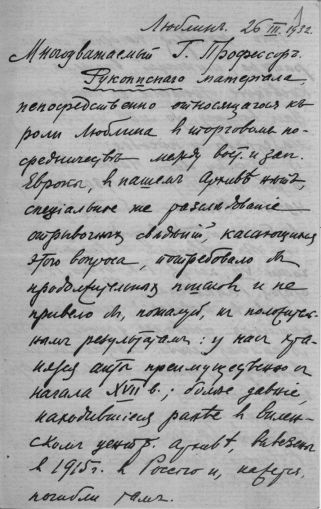 Люблинъ. 26 III. 1932.
Многоуважаемый Г. Профессоръ.
Рукописнаго матеріала,
непосредственно относящагося къ
роли Люблина въ торговомъ по-
средничествѣ между вост. и зап.
Европы, въ нашемъ Архивѣ нѣтъ,
спеціальное же разслѣдованіе
отрывочныхъ свѣдѣній, касающихся
этого вопроса, потребовало бъ
продолжительныхъ поисковъ и не
привело бъ, пожалуй, къ положитель-
нымъ результатамъ: у насъ хра-
нятся акты преимущественно съ
начала XVII в.; болѣе давніе,
находившіеся ранѣе въ Вилен-
скомъ центр. архивѣ, вывезены
въ 1915 г. въ Россію и, кажется,
погибли тамъ.